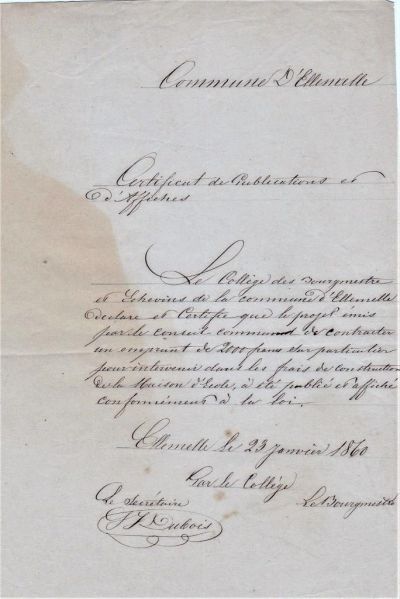 Commune D'Ellemelle
Certificat de Publications et
d'Affiches
Le Collège des Bourgmestre
et Echevins de la commune d'Ellemelle
declare et Certifie que le projet émis
par le conseil communal de contracter
un emprunt de 2000 francs d'un particulier
pour intervenir dans les frais de construction
de la Maison d'Ecole, a été publié et affiché
conformément à la loi.
Ellemelle le 23 janvier 1860
Par le Collège
Le Secrétaire Le Bourgmestre
Dubois